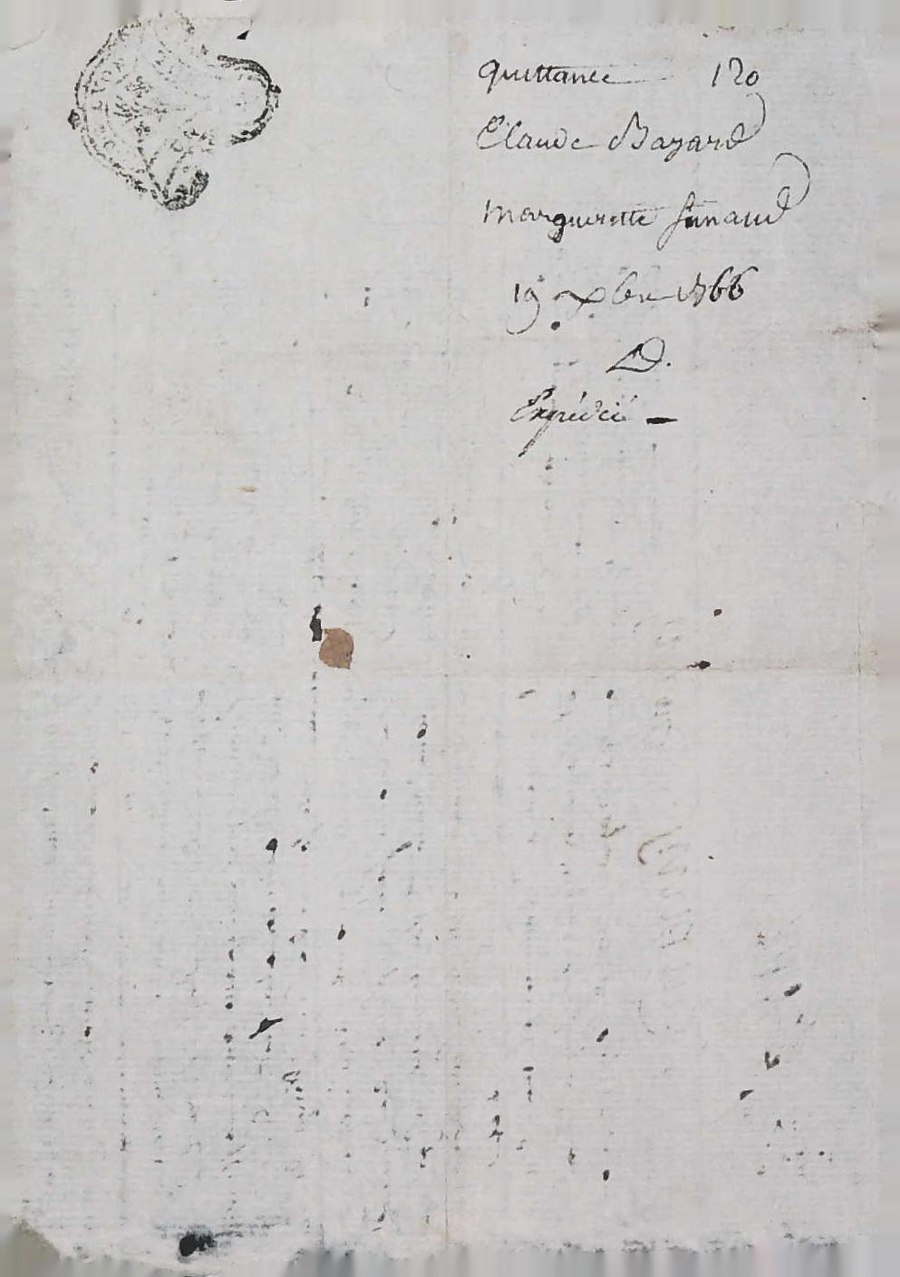 quittance 120
Claude Bayard
marguerette
19 xbre 1766
D.
Expédiée